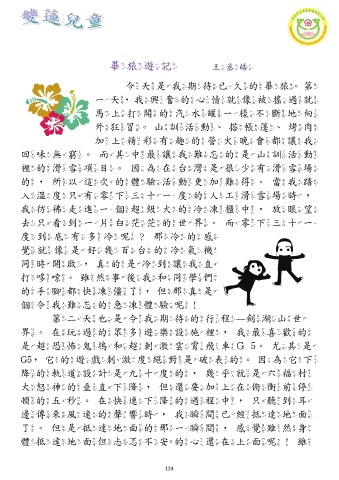 雙蓮兒童
畢旅遊記 王丞皓
今天是我期待已久的畢旅。第
一天，我興奮的心情就像被搖過就
馬上打開的汽水罐一樣不斷地向
外狂冒。山訓活動、搭帳篷、烤肉
加上精彩有趣的營火晚會都讓我
回味無窮。而其中最讓我難忘的是山訓活動
裡的滑雪項目。因為在台灣是很少有滑雪場
的，所以這次的體驗活動更加難得。當我踏
入溫度只有零下三十一度的人工滑雪場時，
我彷彿走進一個超級大的冷凍櫃中，放眼望
去只看到一片白茫茫的世界。而零下三十一
度到底有多冷呢？那冷的感
覺就像是好幾百台的冷氣機
同時開啟，真的是冷到讓我直
打哆嗦。雖然事後我和同學們
的手腳都快凍僵了，但那真是
個令我難忘的急凍體驗呢！
第二天也是令我期待的行程—劍湖山世
界。在玩過的眾多遊樂設施裡，我最喜歡的
是超恐怖鬼塢和超刺激雲霄飛車G5。尤其是
G5，它的遊戲刺激度絕對是破表的。因為它下
降的軌道設計是九十度的，幾乎就是六福村
大怒神的垂直下降，但還要加上在俯衝前停
頓的五秒。在快速下降的過程中，只聽到耳
邊傳來風速的聲響時，我瞬間已經抵達地面
了。但是抵達地面的那一瞬間，感覺雖然身
體抵達地面但忐忑不安的心還在上面呢！雖
124